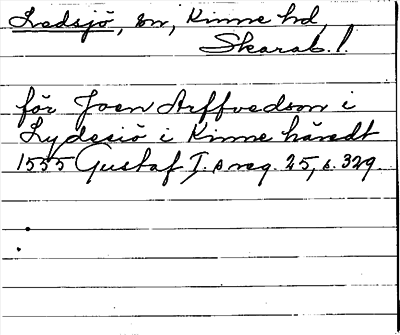 Ledsjö, sn, Kinne hd,
Skarab. l.
för Joen Arffvedson i
Lydesiö i Kinne häredt
1555 Gustaf I:s reg. 25, s. 329.